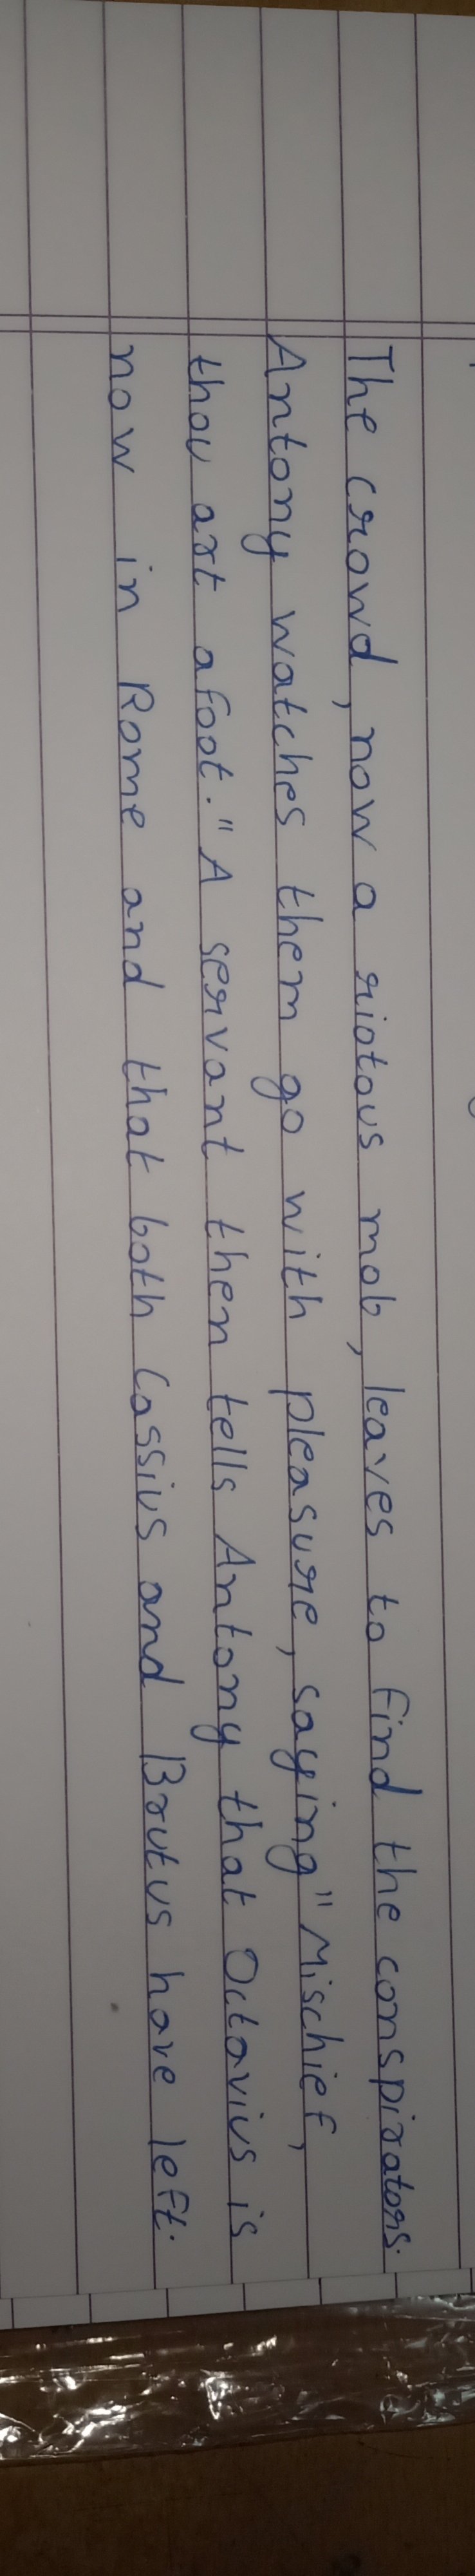 The crowd, now a riotous mob, leaves to find the conspirators.
Antony watches them go with pleasure, saying "Mischief,
thou art afoot." A servant then tells Antony that Octavius is
now in Rome and that both Cassius and Brutus have left.